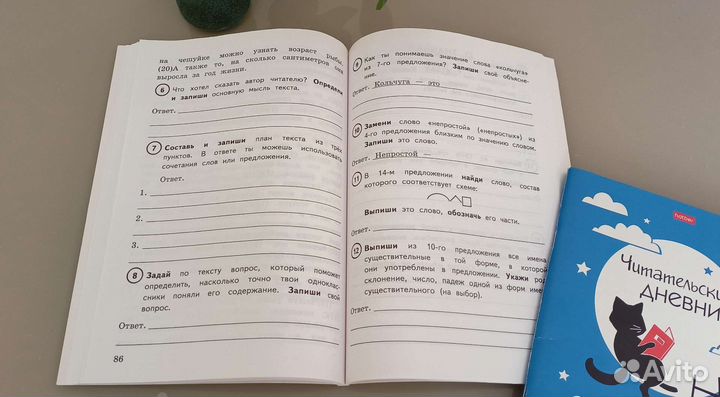 на чешуйке можно узнать возраст рыбы.
(20)А также то, на сколько сантиметров она
выросла за год жизни.
6 Что хотел сказать автор читателю? Определи
и запиши основную мысль текста.
Ответ.
7 Составь и запиши план текста из трёх
пунктов. В ответе ты можешь использовать
сочетания слов или предложения.
Ответ.
1.
2.
3.
8 Задай по тексту вопрос, который поможет
определить, насколько точно твои однокласс-
сники поняли его содержание. Запиши свой
вопрос.
Ответ.
86
9 Как ты понимаешь значение слова «кольчуга»
из 7-го предложения? Запиши своё объясне-
ние.
Ответ. Кольчуга — это
10 Замени слово «непростой» («непростых») из
4-го предложения близким по значению словом.
Запиши это слово.
Ответ. Непростой —
11 В 14-м предложении найди слово, состав
которого соответствует схеме:
Выпиши это слово, обозначь его части.
Ответ.
12 Выпиши из 10-го предложения все имена
существительные в той форме, в которой
они употреблены в предложении. Укажи род,
склонение, число, падеж одной из форм имени
существительного (на выбор).
Ответ.
hatber
Читательски
дневни
Avito